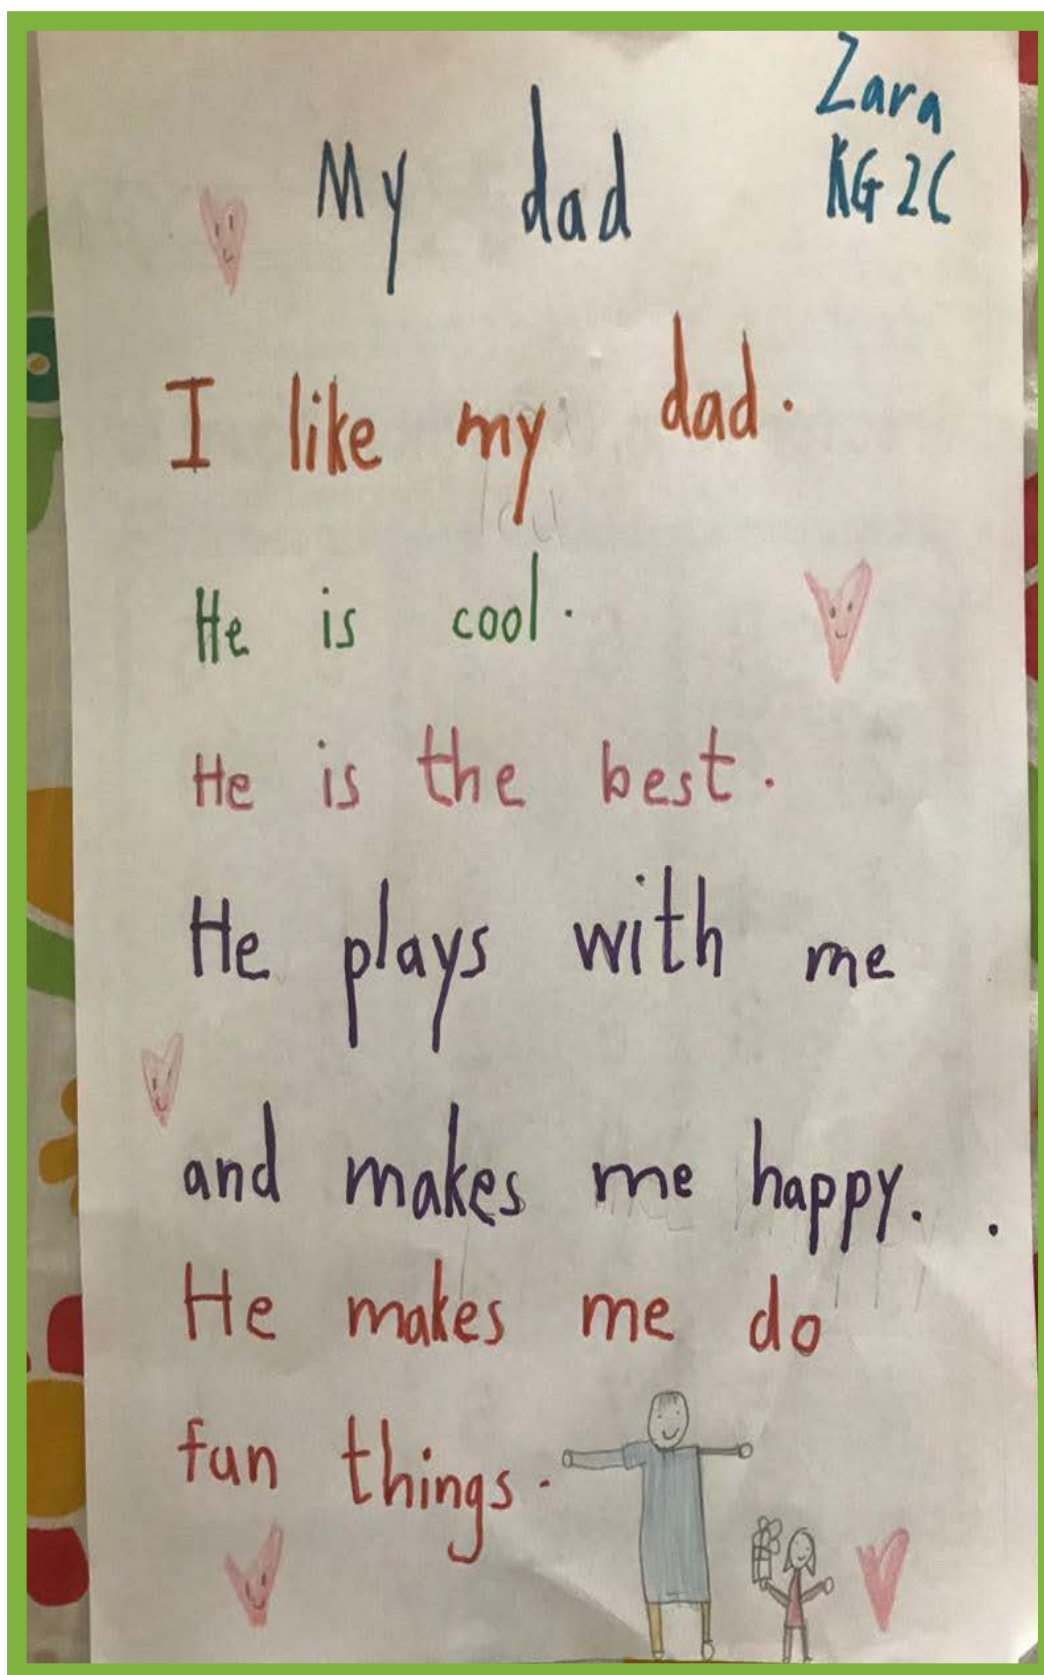 Zara
KG 2C
My dad
I like my dad.
He is cool.
He is the best.
He plays with me
and makes me happy. .
He makes me do
fun things.